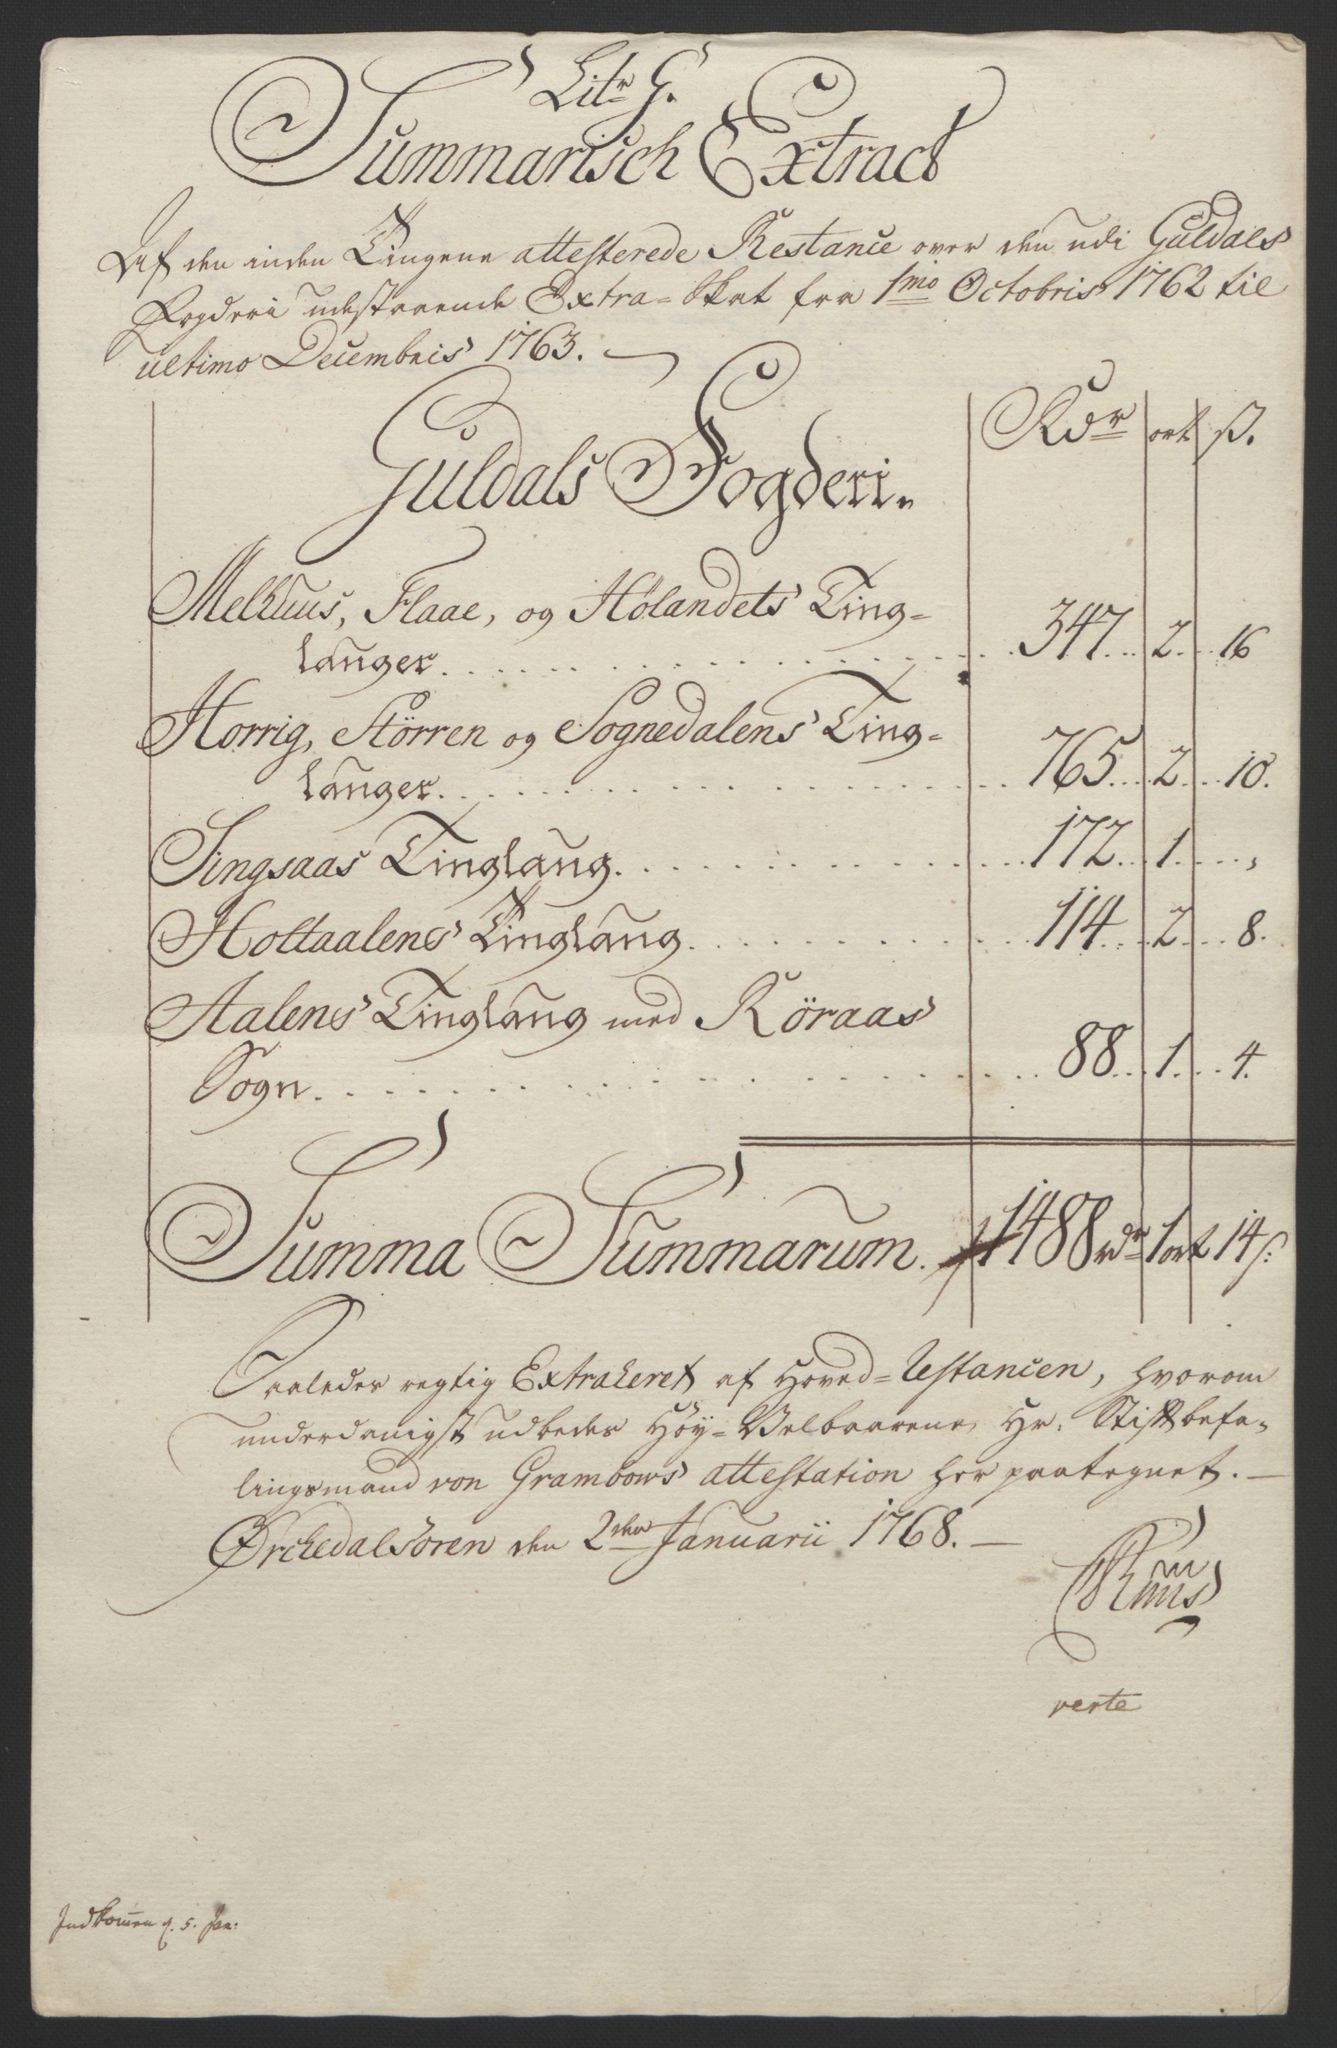 Litr G.
Summarisch Extract
Af den inden Tingene attesterede Restance over den udi Guldals
Fogderi udestaaende Extra-Skat fra 1mo Octobris 1762 til
ultimo Decembris 1763.
Rdr ort ß.
Guldals Fogderi.
Melhuus, Flaae, og Hølandets Ting-
lauger. 347. 2. 16
Horrig, Störren og Sognedalens Ting-
lauger. 765. 2. 10.
Singsaas Tinglaug. 172. 1. „
Holtaalens Tinglaug. 114. 2. 8.
Aalens Tinglaug med Röraas
Sogn. 88. 1. 4.
Summa Summarum. 1488 rdr 1 ort 14 s:
Saaledes regtig Extraheret af Hoved-Restancen, hvorom
underdanigst udbedes Høy-Velbaarene Hr: Stiftbefa-
lingsmand von Grambows attestation her paategnet.
Ørchedalsören den 2den Januarii 1768.
verte
Indkomen d. 5. Jan: